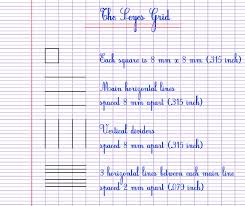 The Seyes Grid
Each square is 8 mm x 8 mm (.315 inch)
Main horizontal lines
spaced 8 mm apart (.315 inch)
Vertical dividers
spaced 8 mm apart (.315 inch)
3 horizontal lines between each main line
spaced 2 mm apart (.079 inch)